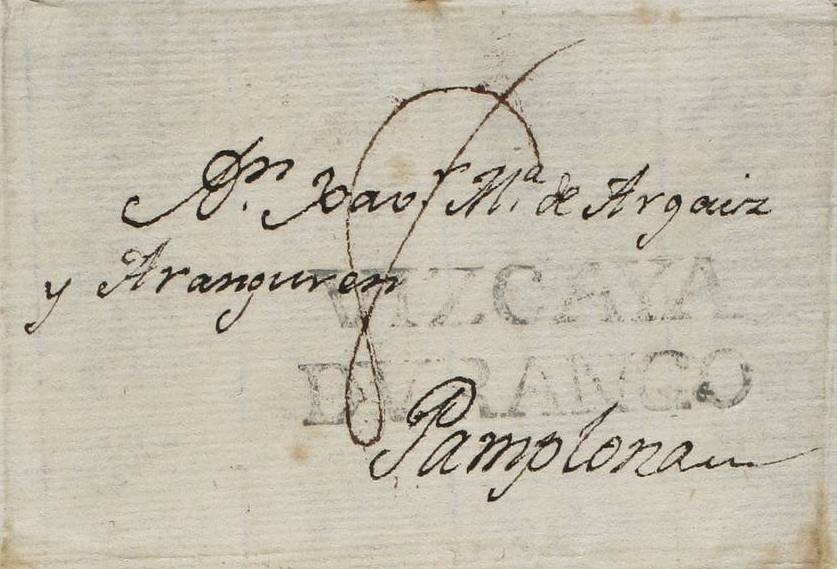 Dn. Xavr. Ma. de Argaiz
y Aranguren
VIZCAYA
DURANGO
Pamplona